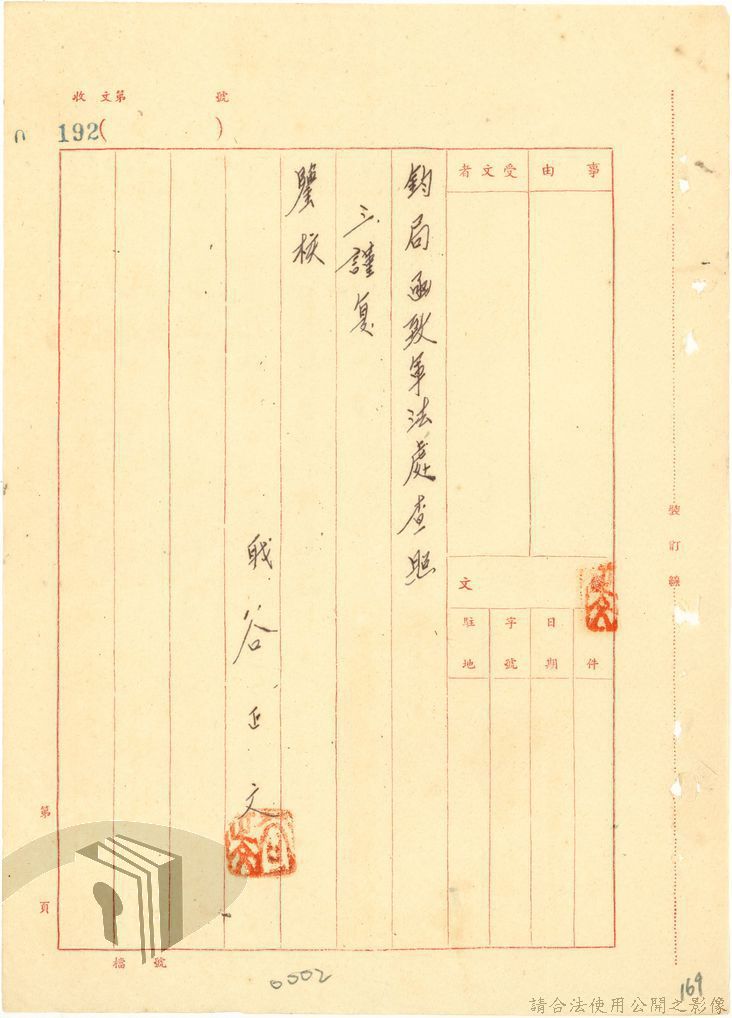 收文第 號
192( )
事由
受文者
文件
日期
字號
駐地
鈞局函致軍法處查照
三、謹復
鑒核
職谷正文
裝訂線
第 頁
檔 號
0002
169
請合法使用公開之影像